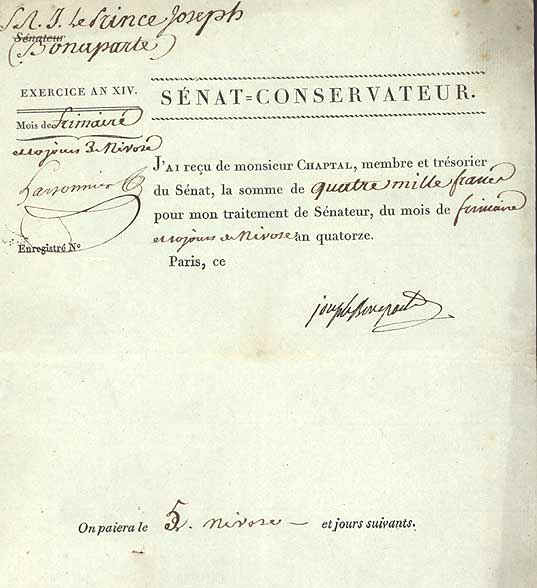 S. A. I. Le Prince Joseph
Sénateur
(Bonaparte)
EXERCICE AN XIV.
SÉNAT=CONSERVATEUR.
Mois de Frimaire
et 10 jours de Nivose
J'AI reçu de monsieur CHAPTAL, membre et trésorier
du Sénat, la somme de quatre mille francs
pour mon traitement de Sénateur, du mois de frimaire
et 10 jours de Nivose an quatorze.
Enregistré N.º
Paris, ce
joseph Bonaparte
On paiera le 5. nivose — et jours suivants.